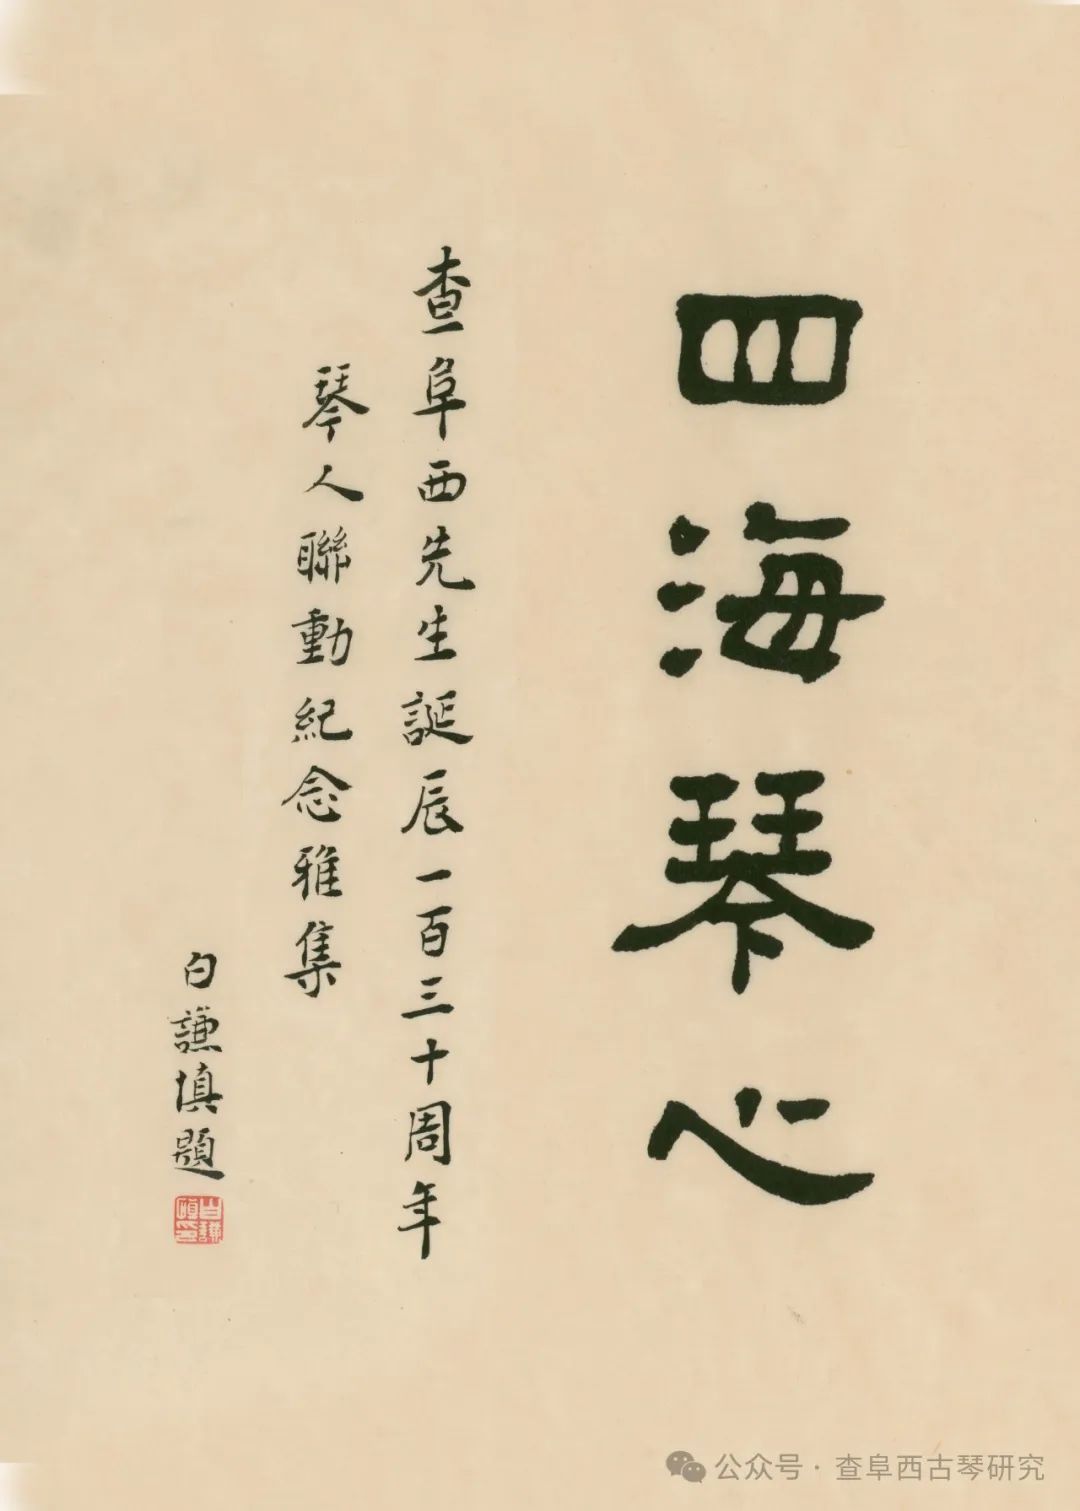 四海琴心
查阜西先生誕辰一百三十周年
琴人聯動紀念雅集
白謙慎題
白謙慎印
公众号·查阜西古琴研究